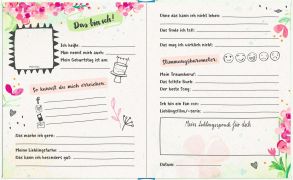 Das bin ich!
Ich heiße:
Man nennt mich auch:
Mein Geburtstag ist am:
So kannst du mich erreichen:
Das mache ich gern:
Meine Lieblingsfarbe:
Das kann ich besonders gut:
Ohne das kann ich nicht leben:
Das finde ich toll:
Das mag ich wirklich nicht:
Stimmungsbarometer:
Mein Traumberuf:
Das tollste Buch:
Der beste Song:
Ich bin ein Fan von:
Lieblingsfilm/-serie:
Mein Lieblingsspruch für dich
Datum: